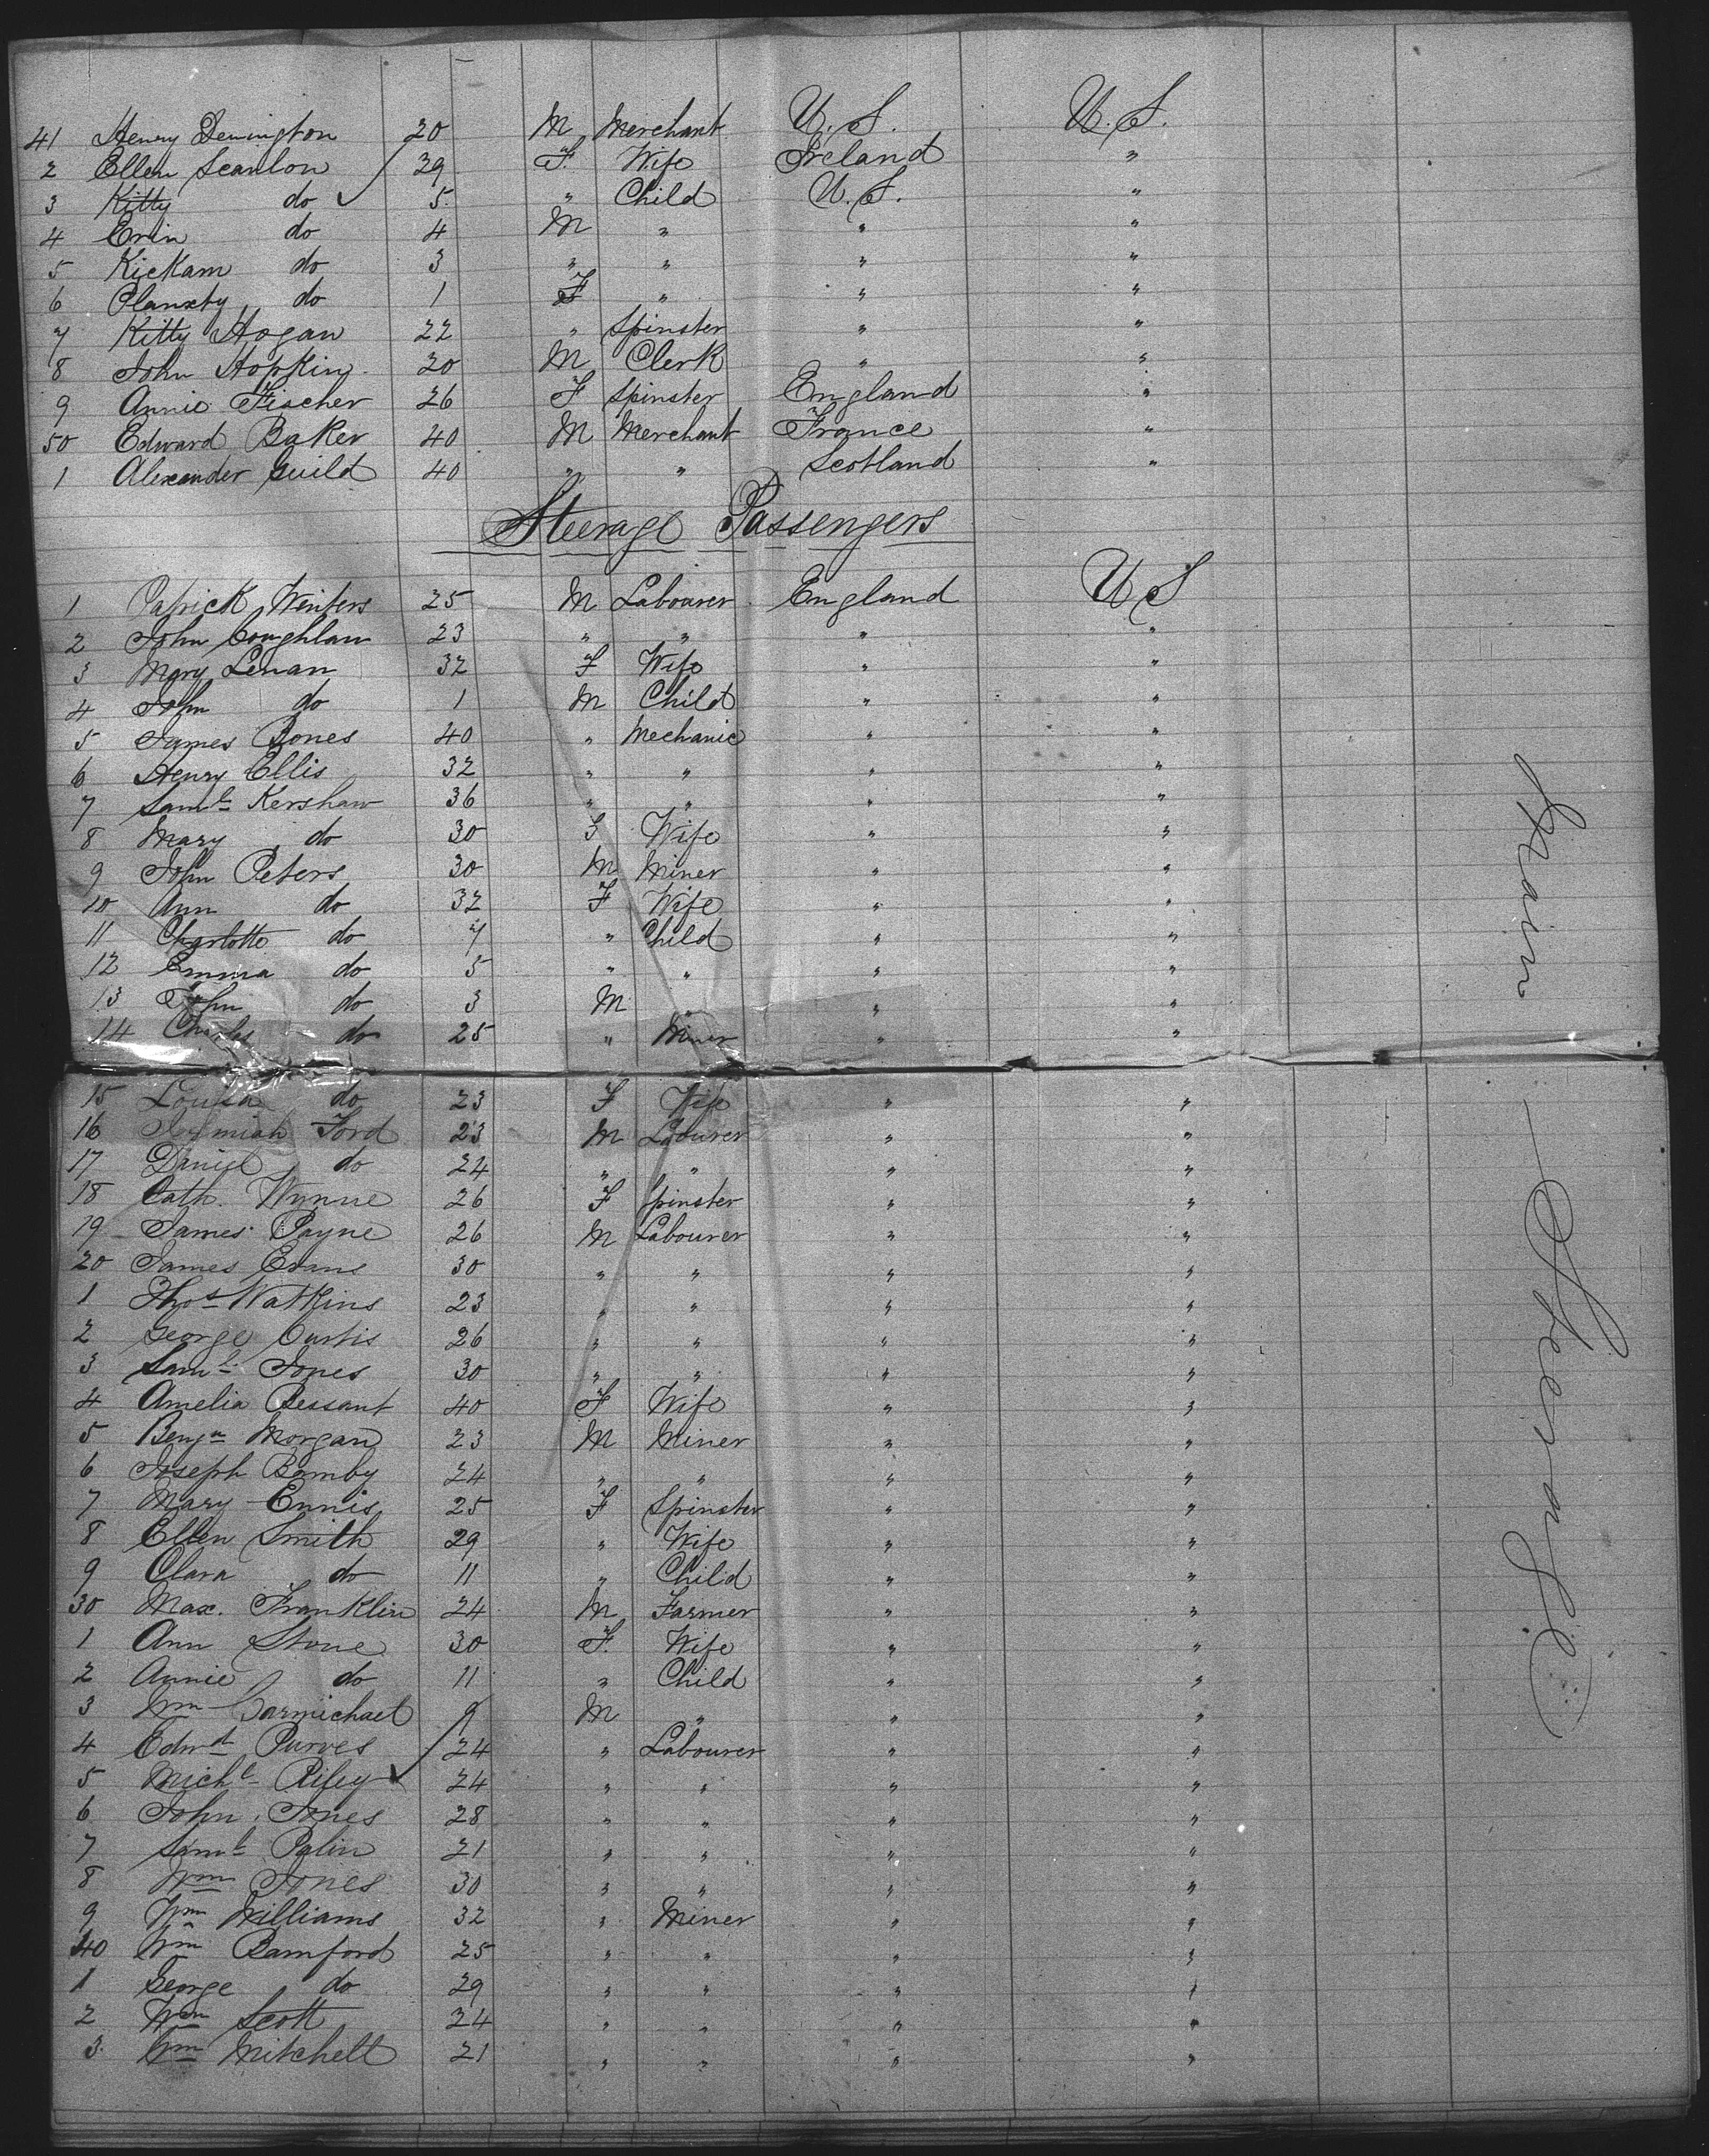 41 Henry Dennington 20 M Merchant U. S. U. S.
2 Ellen Scanlon 39 F. Wife Ireland "
3 Kitty do 5 " Child U. S. "
4 Erin do 4 M " " "
5 Kickam do 3 " " " "
6 Planxty do 1 F " " "
7 Kitty Hogan 22 " Spinster " "
8 John Hopkins 20 M Clerk " "
9 Annie Fischer 26 F Spinster England "
50 Edward Baker 40 M Merchant France "
1 Alexander Guild 40 " " Scotland "
Steerage Passengers
1 Patrick Winters 25 M Labourer England U S
2 John Coughlan 23 " " " "
3 Mary Lenan 32 F Wife " "
4 John do 1 M Child " "
5 James Bones 40 " Mechanic " "
6 Henry Ellis 32 " " " "
7 Saml Kershaw 36 " " " "
8 Mary do 30 F Wife " "
9 John Peters 30 M Miner " "
10 Ann do 32 F Wife " "
11 Charlotte do 7 " Child " "
12 Emma do 5 " " " "
13 John do 3 M " " "
14 Charles do 25 " Miner " "
15 Louisa do 23 F Wife " "
16 Jeremiah Ford 23 M Labourer " "
17 Daniel do 24 " " " "
18 Cath. Wynne 26 F Spinster " "
19 James Payne 26 M Labourer " "
20 James Evans 30 " " " "
1 Thos Watkins 23 " " " "
2 George Curtis 26 " " " "
3 Saml Jones 30 " " " "
4 Amelia Bessant 40 F Wife " "
5 Benjn Morgan 23 M Miner " "
6 Joseph Bamby 24 " " " "
7 Mary Ennis 25 F Spinster " "
8 Ellen Smith 29 " Wife " "
9 Clara do 11 " Child " "
30 Max. Franklin 24 M Farmer " "
1 Ann Stone 30 F. Wife " "
2 Annie do 11 " Child " "
3 Wm Carmichael 9 M " " "
4 Edwd Purves 24 " Labourer " "
5 Michl Riley 24 " " " "
6 John Jones 28 " " " "
7 Saml Palin 21 " " " "
8 Wm Jones 30 " " " "
9 Wm Williams 32 " Miner " "
40 Wm Bamford 25 " " " "
1 George do 29 " " " "
2 Wm Scott 24 " " " "
3. Wm Mitchell 21 " " " "
Spain - Steerage